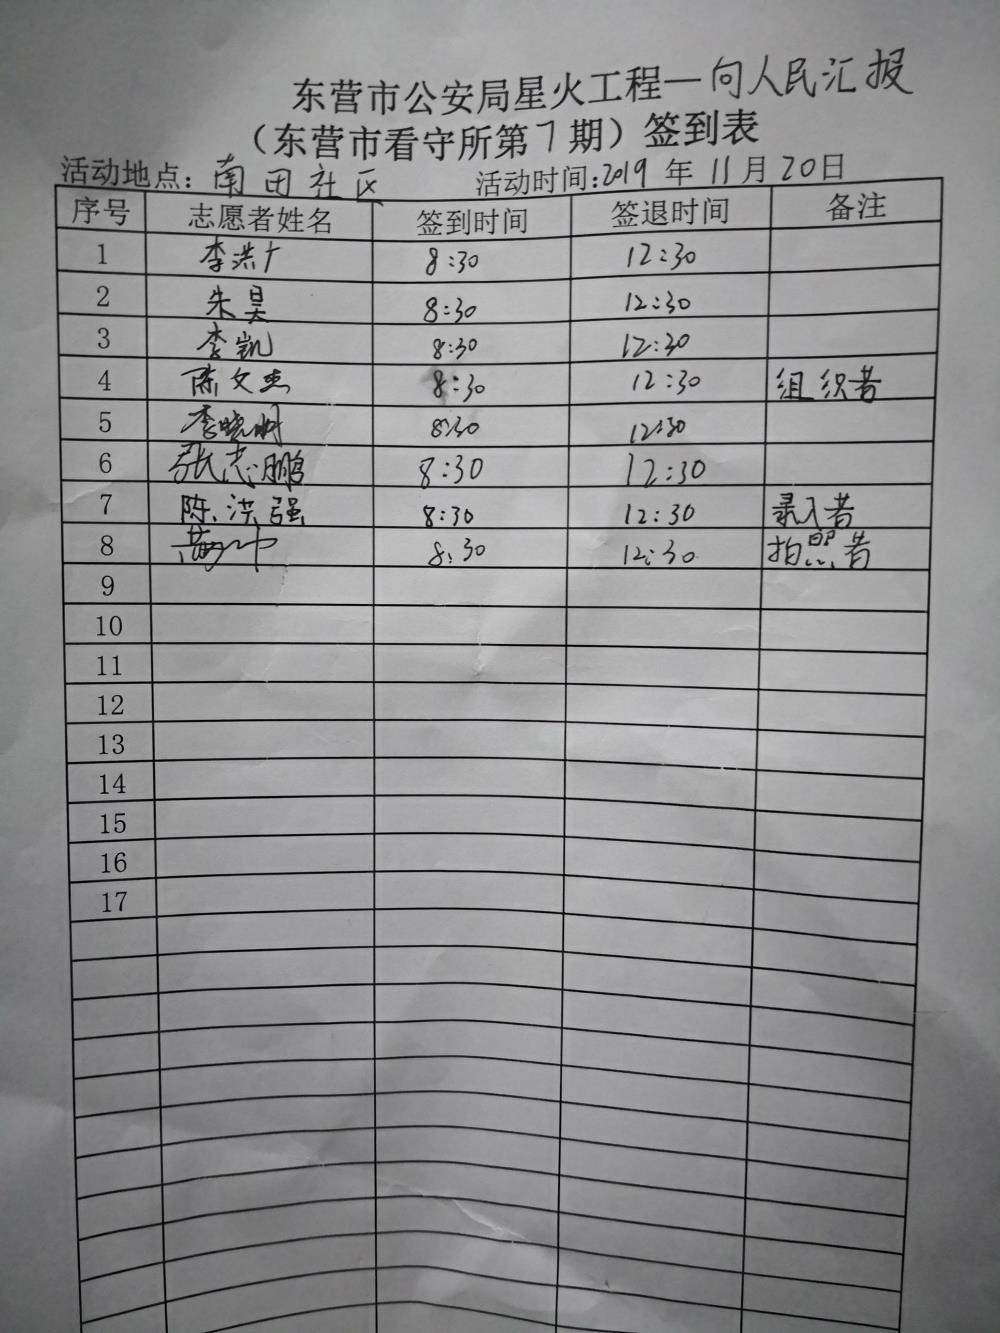 东营市公安局星火工程—向人民汇报
（东营市看守所第7期）签到表
活动地点：南田社区 活动时间:2019 年 11 月 20日
序号 志愿者姓名 签到时间 签退时间 备注
1 李洪广 8:30 12:30
2 朱昊 8:30 12:30
3 李凯 8:30 12:30
4 陈文杰 8:30 12:30 组织者
5 李晓明 8:30 12:30
6 张志鹏 8:30 12:30
7 陈洪强 8:30 12:30 录入者
8 8:30 12:30 拍照者
9
10
11
12
13
14
15
16
17